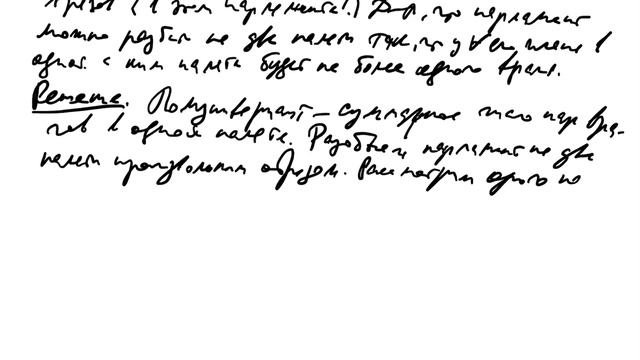 врагов (в этом парламенте!) Док, что парламент
можно разбить на две палаты так, что у ∀ его члена в
одной с ним палате будет не более одного врага.
Решение. Полуинвариант – суммарное число пар вра-
гов в одной палате. Разобьём парламент на две
палаты произвольным образом. Рассмотрим одного из